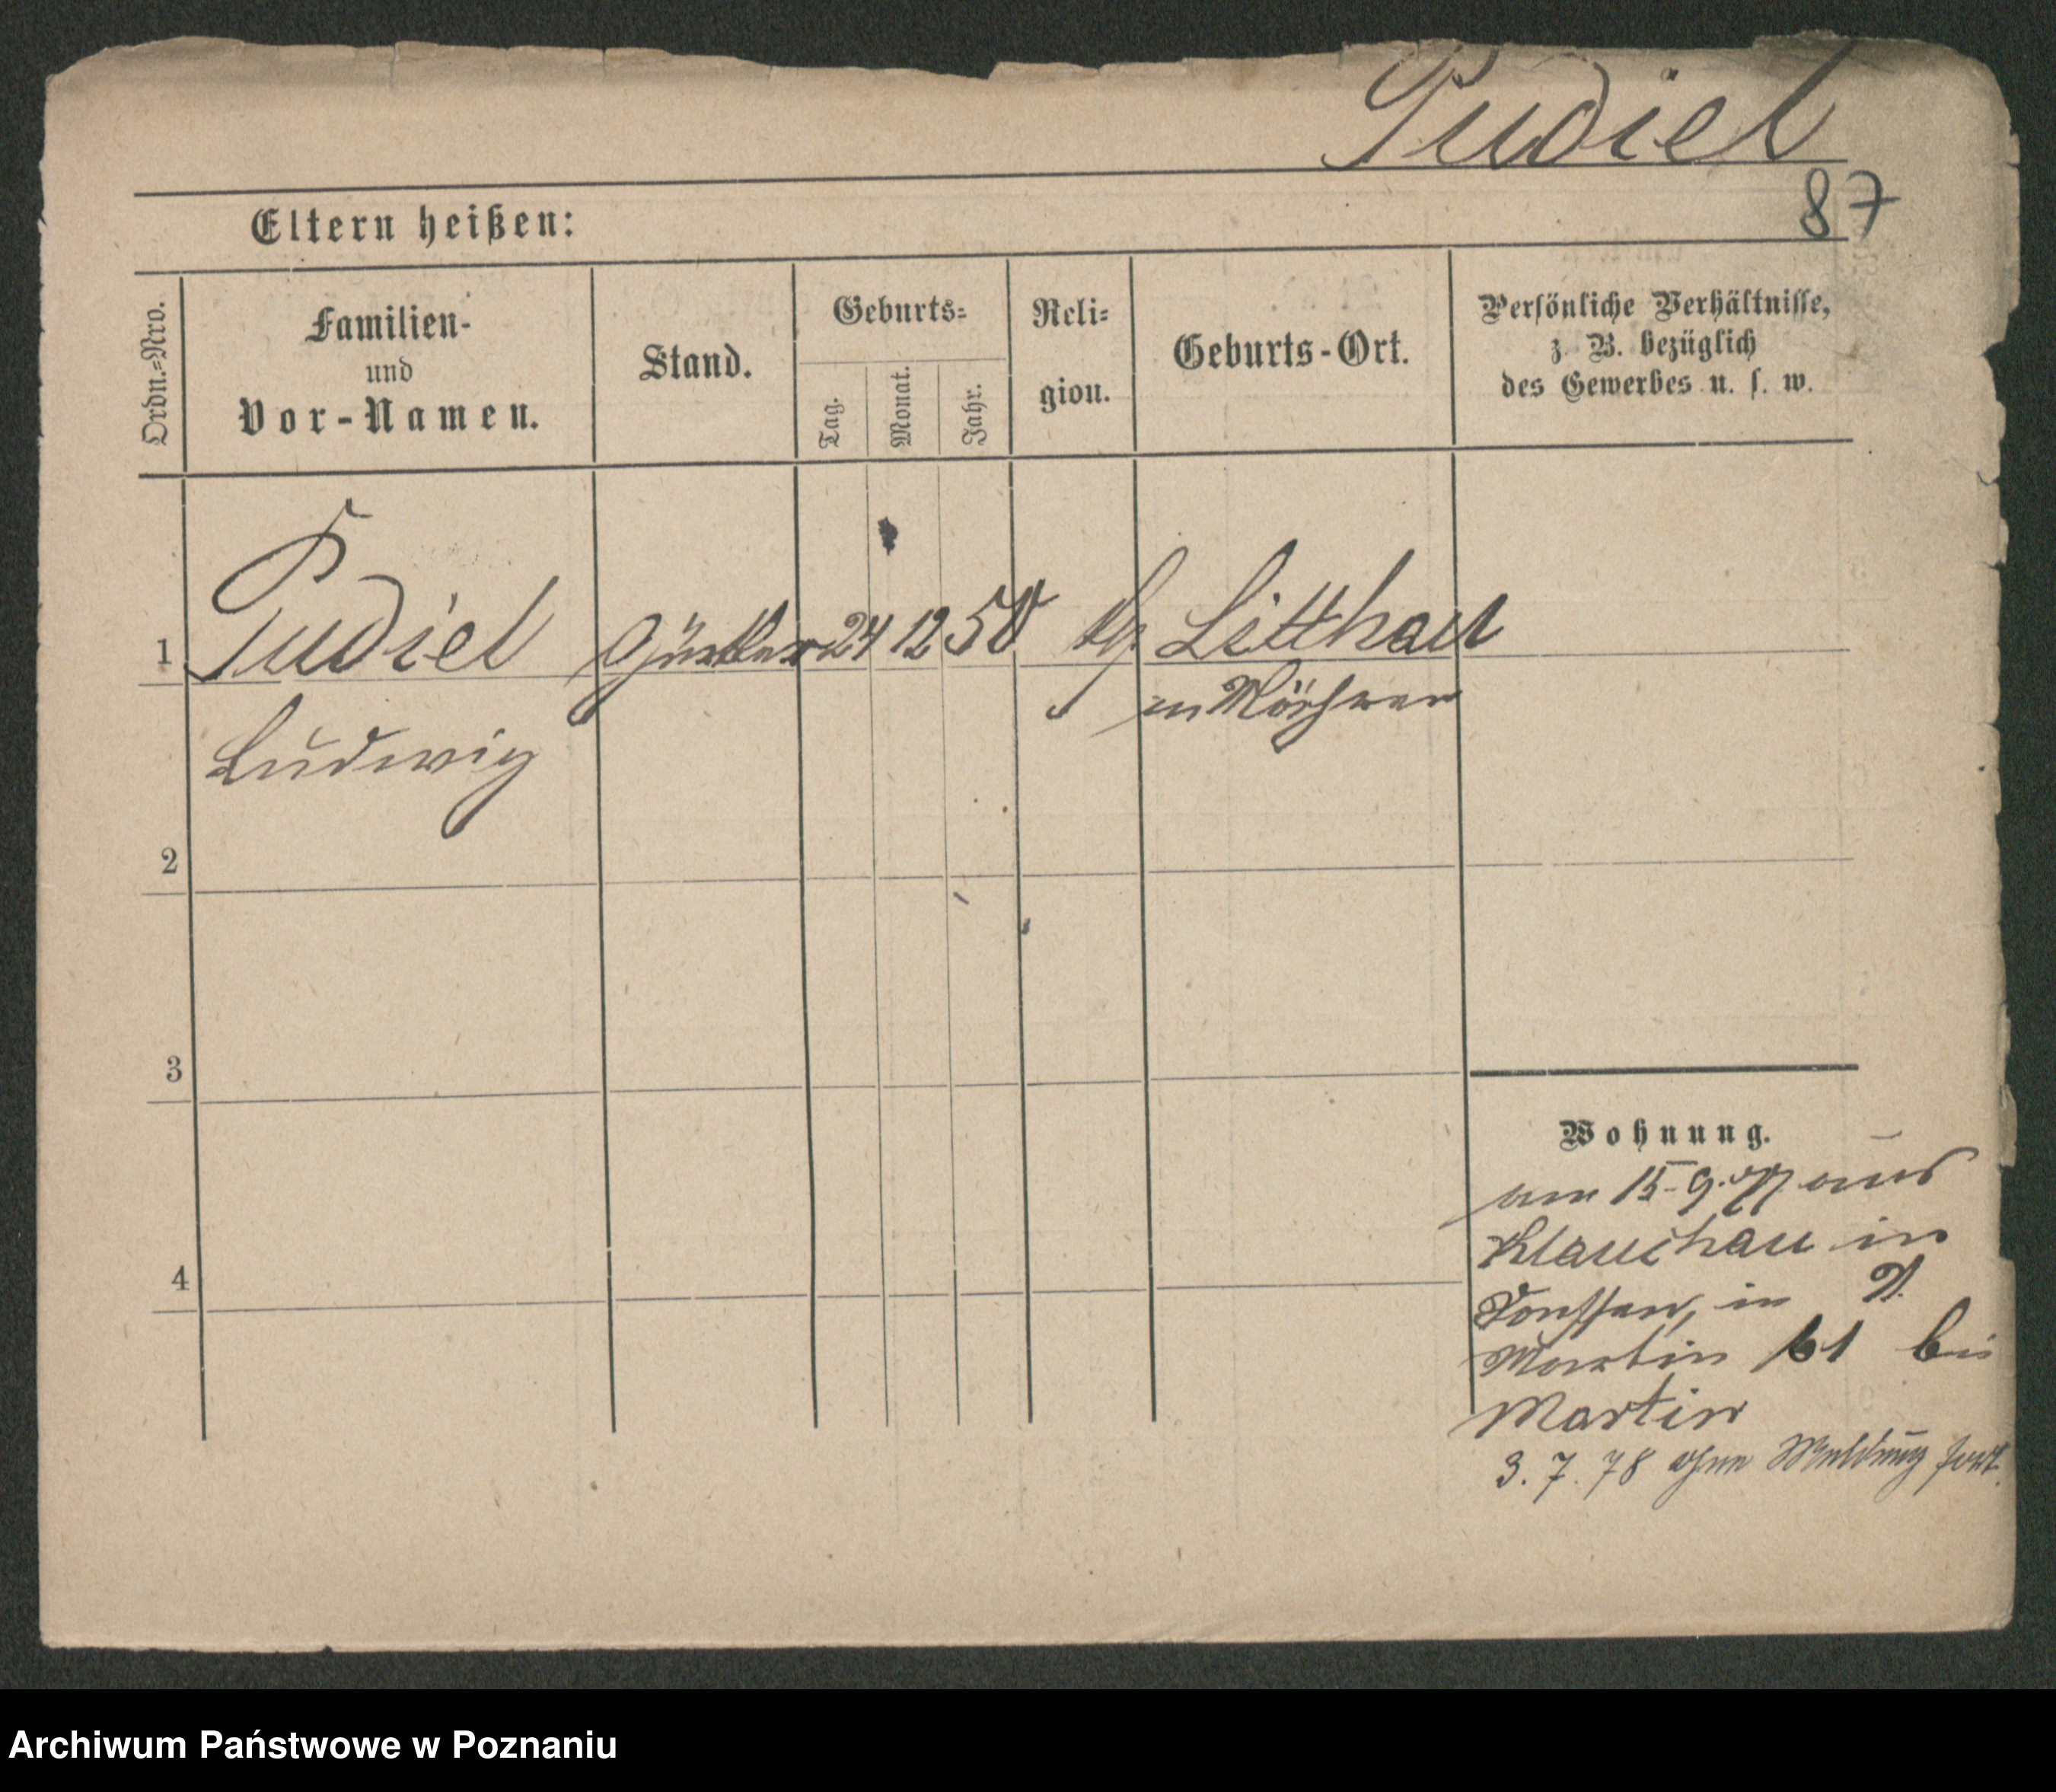 Pudiel
87
Eltern heißen:
Ordn.=Nro.
Familien-
und
Vor-Namen.
Stand.
Geburts=
Tag.
Monat.
Jahr.
Reli=
gion.
Geburts-Ort.
Persönliche Verhältnisse,
z. B. bezüglich
des Gewerbes u. s. w.
1 Pudiel 24 12 50 Litthau
in Mähren
Ludwig
2
3
4
Wohnung.
am 15.9.77 aus
in
in
Martin 61 bei
Martin
3. 7. 78 ohne Meldung fort.
Archiwum Państwowe w Poznaniu